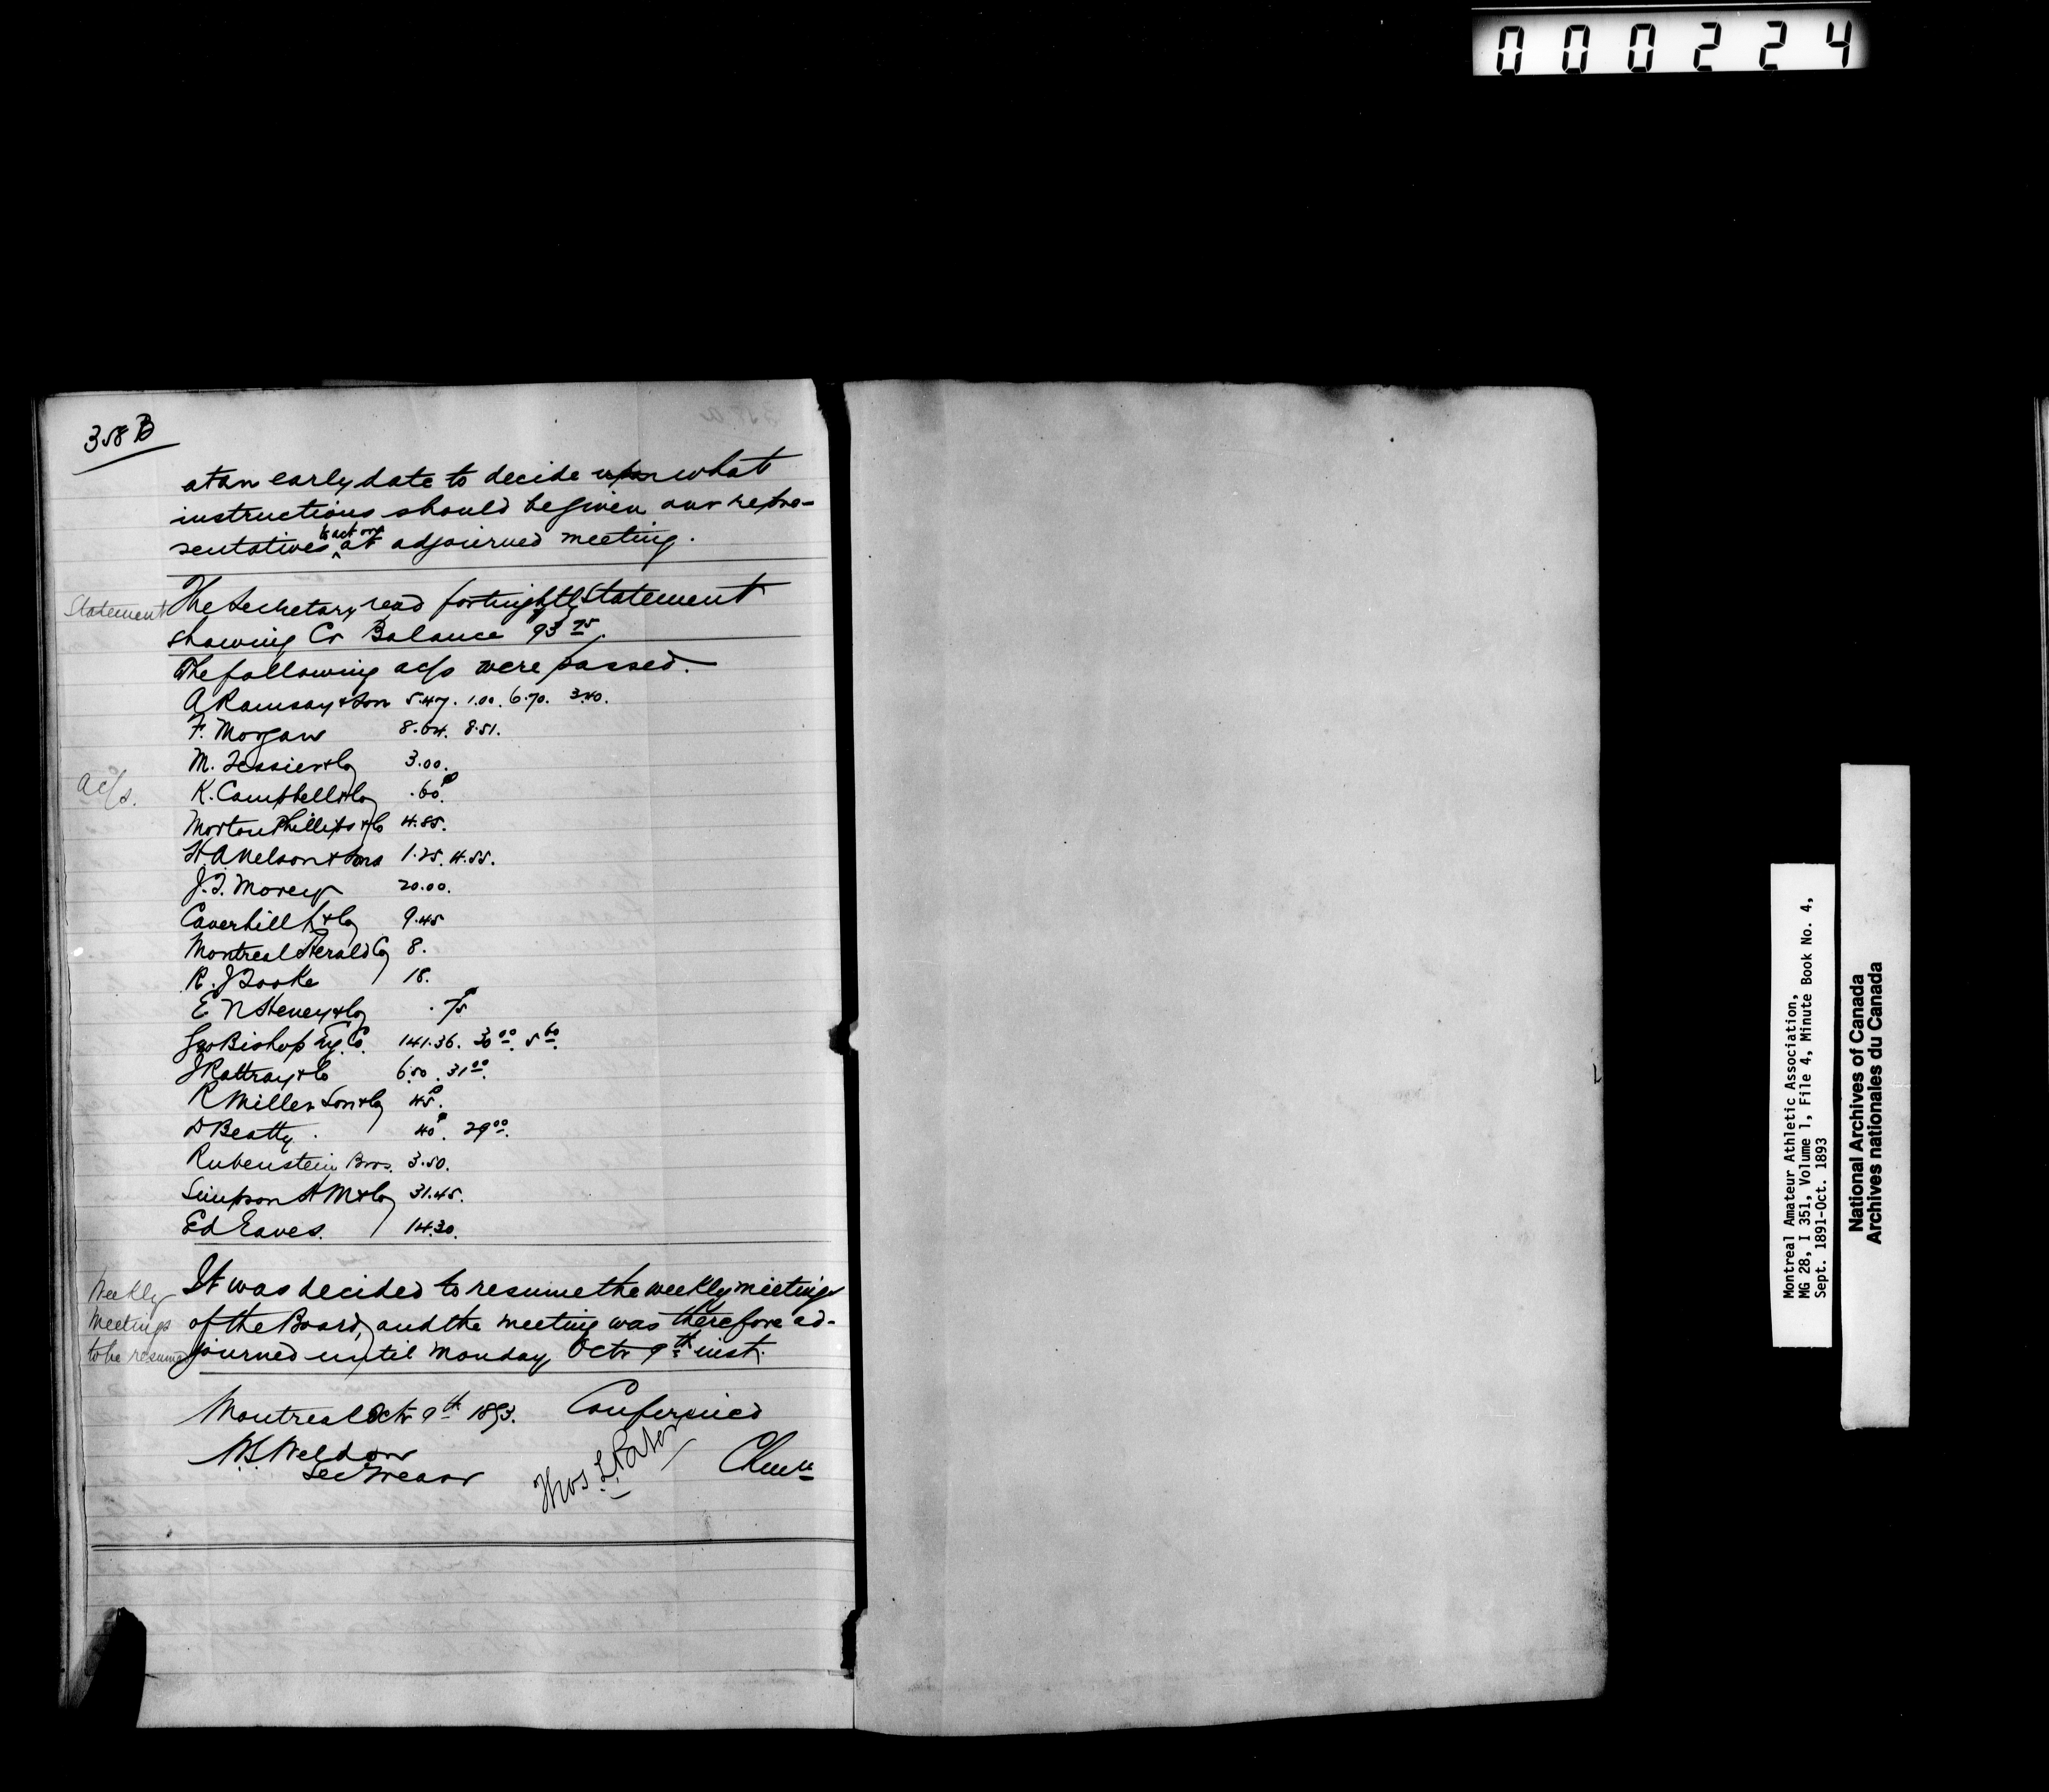 000224
358 B
at an early date to decide upon what
instructions should be given our repre-
sentatives to act on at adjourned meeting.
Statement
The Secretary read fortnightly Statement
showing Cr Balance 93 75.
The following ac/s were passed.
ac/s.
A Ramsay & Son 5.47. 1.00. 6.70. 3.40.
F. Morgan 8.04. 8.51.
M. Tessier & Co 3.00.
K. Campbell & Co .60¢.
Morton Phillips & Co 4.85.
H. A Nelson & Sons 1.25. 4.55.
J. T. 20.00.
Caverhill & Co 9.45
Montreal Herald Co 8.
R. J Tooke 18.
E N Heney & Co .75¢
Geo Bishop Eg. Co. 141.36. 30 00. 5 60.
J Rattray & Co 6.50. 31 00.
R Miller Son & Co 45¢.
D Beatty. 40¢. 29 00.
Rubenstein Bros. 3.50.
Simpson H M & Co 31.45.
Ed Eaves. 14.30.
Weekly
Meetings
to be resumed
It was decided to resume the weekly meetings
of the Board, and the meeting was therefore ad-
journed until Monday Octr 9th inst.
Montreal Octr 9th 1893. Confirmed
W. S. Weldon
Sec Treasr
Thos. L. Paton
Chmn
Montreal Amateur Athletic Association,
MG 28, I 351, Volume 1, File 4, Minute Book No. 4,
Sept. 1891-Oct. 1893
National Archives of Canada
Archives nationales du Canada